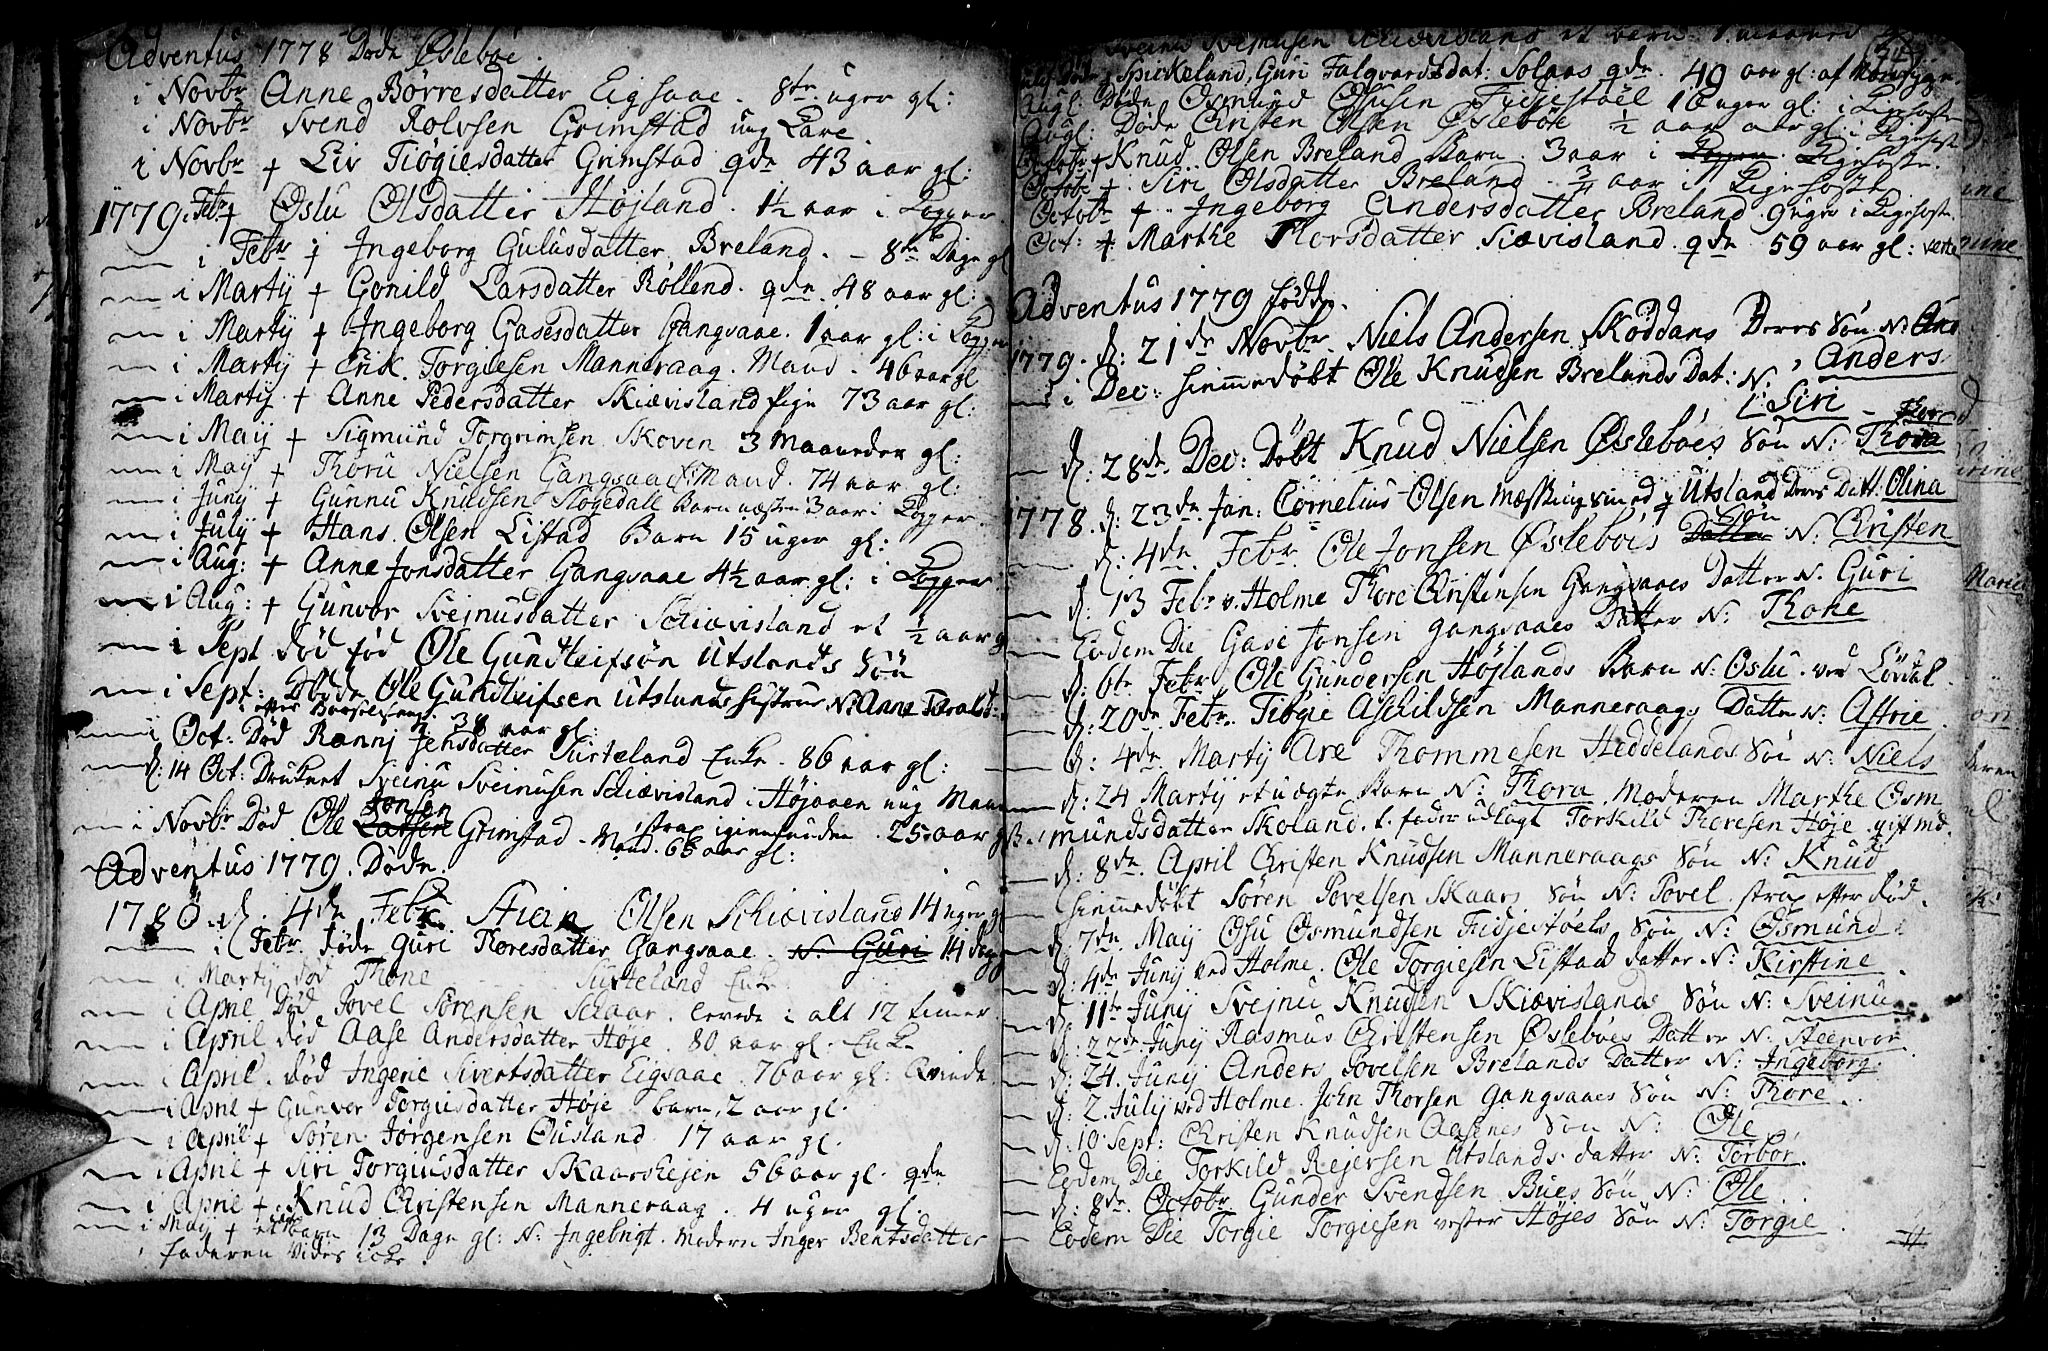 Adventus 1778 Døde Øslebøe.
i Novbr Anne Børresdatter Eigsaae. 8te uger gl:
i Novbr Svend Rolvsen Grimstad ung Care
i Novbr + Liv Tiøgiesdatter Grimstad qde 43 aar gl:
1779. Febr + Øslu Olsdatter Højland. 1½ aar i Kopper
i Febr + Ingeborg Gulusdatter Breland. 8te Dage gl
i Martij + Gonild Larsdatter Røllend. qde. 48 aar gl:
i Martij + Ingeborg Gasesdatter Gangsaae. 1 aar gl: i Kopper
i Martij + Erik Torgiesen Manneraag. Mand. 46 aar gl
i Martij + Anne Pedersdatter Skiævisland Pige 73 aar gl:
i Maij + Sigmund Torgrimsen Skoven 3 Maaneder gl:
i Maij + Thoru Nielsen Gangsaae Mand. 74 aar gl:
i Junij + Gunnu Knudsen Støgedall Barn næsten 3 aar i Kopper
i Julij + Hans Olsen Listad Barn 15 uger gl:
i Aug: + Anne Jonsdatter Gangsaae 4½ aar gl: i Kopper
i Aug: + Gunvor Svejnusdatter Schiævisland et ½ aar g
i Sept død fød Ole Gundleifsøn Utslands Søn
i Sept: Døde Ole Gundleifsen Utslands Hustrue N: Anne
i efter Barselseng. 38 aar gl:
i Oct: Død Rannj Jensdatter Surteland Enke. 86 aar gl:
d: 14 Oct: Druknet Sveinu Sveinusen Schiævisland i Højaaen ung Mand
strax igienfunden. 25 aar gl
i Novbr Død Ole Larsen Jonsen Grimstad. Mand. 66 aar gl:
Adventus 1779. Døde.
1780. d. 4de Febr Stian Olsen Schiævisland 14 uger gl
i Febr. døde Guri Thoresdatter Gangsaae. N: Guri 14 Dage
i Martij død Thone Surteland Enke
i April Død Povel Sørensen Schaar. levede i alt 12 timer.
i April død Aase Andersdatter Høje. 80 aar gl. Enke
i April. død Ingerie Sivertsdatter Eigsaae. 76 aar gl: Qvinde
i April + Gunvor Torgiusdatter Høje barn. 2 aar gl.
i April + Søren Jørgensen Øusland. 17 aar gl.
i April + Siri Torgiusdatter Skaarshejen 56 aar gl. qde
i April + Knud Christensen Manneraag. 4 uger gl.
i Maij + et barn 13 Dage gl: N: Ingebrigt. Modern Inger Bentsdatter
faderen vides icke.

Sveinu Svejnusen Schiævisland et barn 1 maaned
Spickeland, Guri Falqvardsdat: Solaas qde. 49 aar gl: af
Augl: Døde Osmund Osusen Fidjestøel 16 uger gl: i Kigehoste
Augl: Døde Christen Olsen Øslebøe ½ aar gl: i Kigehoste
Octobr + Knud Olsen Breland Barn 3 aar i Kopper Kigehoste.
Octobr + Siri Olsdatter Breland ¾ aar i Kigehoste
Octobr + Ingeborg Andersdatter Breland 9 uger i Kigehoste.
Oct: + Marthe Thorsdatter Siævisland. qde 59 aar gl: verte
Adventus 1779 fødde.
1779. d: 21de Novbr Niels Andersen Skoddans Deres Søn N: Anders
i Dec: hiemmedøbt Ole Knudsen Brelands Dat: N: Siri
d: 28de Dec: Døbt Knud Nielsen Øslebøes Søn N: Thora Thore
1778. d: 23de Jan: Cornelius Olsen Messingsmed Utsland Deres Datt: Olina
d: 4de Febr. Ole Jonsen Øslebøes Datter Søn N: Christen
d: 13 Febr. v. Holme Thore Christensen Gangsaaes Datter N. Guri
Eodem Die Gase Jonsen Gangsaaes Datter N: Thone
d: 6te Febr Ole Gundersen Højlands Barn N: Oslu. ved Løvdal.
d: 20de Febr. Tiøgie Aschildsen Manneraags Datter N: Astrie.
d: 4de Martij Are Thommesen Heddelands Søn N: Niels
d: 24 Martij et uægte Barn N: Thora. Moderen Marthe Osmundsdatter Skoland. t. fader udlagt Torkild Thoresen Høje. gift md.
d: 8de. April Christen Knudsen Manneraags Søn N: Knud
hiemmedøbt Søren Povelsen Skaars Søn N: Povel. strax efter død.
d: 7de. Maij Osu Osmundsen Fidjestøels Søn N: Osmund
d: 4de Junij ved Holme. Ole Torgiesen Listad datter N: Kirstine
d: 11te Junij Svejnu Knudsen Skiævislands Søn N: Sveinu
d: 22de Junij Rasmus Christensen Øslebøes Datter N: Steenvor
d: 24. Junij Anders Povelsen Brelands Datter N: Ingeborg
d: 2. Julij ved Holme. John Thorsen Gangsaaes Søn N: Thore.
d: 10 Sept: Christen Knudsen Aasenes Søn N: Ole
Eodem Die Torkild Rejersen Utslands. datter N: Torbor.
d: 8de Octobr Gunder Svendsen Bues Søn N: Ole.
Eodem Die Torgie Torgiesen vester Højes Søn N: Torgie.